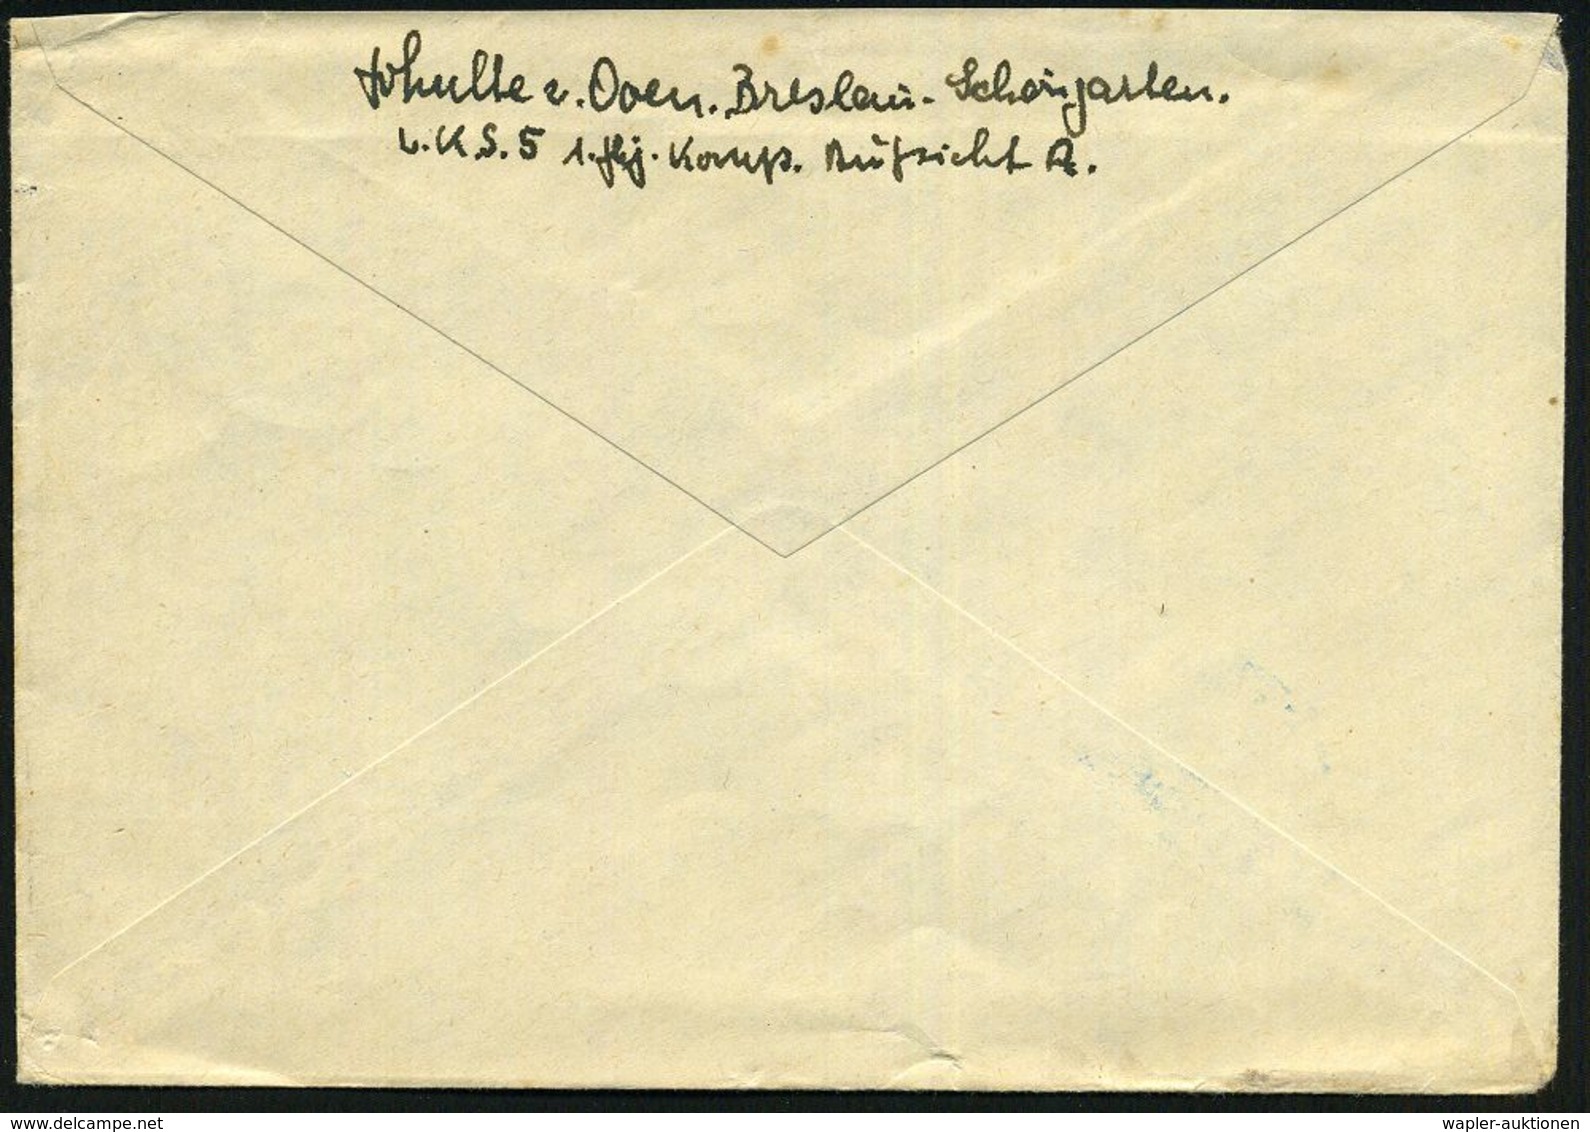 Schulte v. Oven. Breslau-Schöngarten.
L.K.S. 5 1. Flj. Komp. Aufsicht A.
delcampe.net
wapler-auktionen